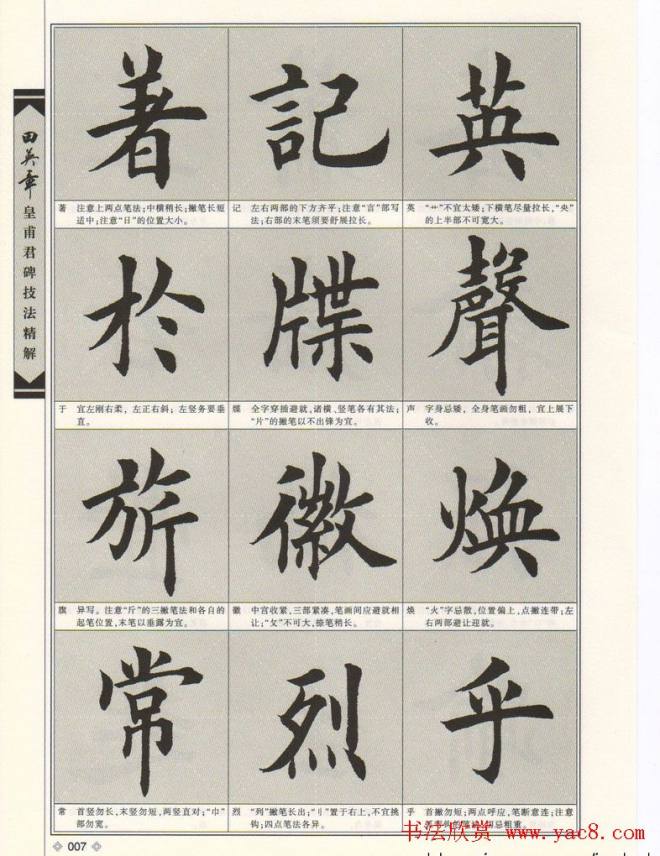 田英章
皇甫君碑技法精解
英
英 “艹”不宜太矮；下横笔尽量拉长，“央”
的上半部不可宽大。
聲
声 字身忌矮，全身笔画勿粗，宜上展下
收。
煥
焕 “火”字忌散，位置偏上，点撇连带；左
右两部避让迎就。
乎
乎 首撇勿短；两点呼应，笔断意连；注意
記
记 左右两部的下方齐平；注意“言”部写
法；右部的末笔须要舒展拉长。
牒
牒 全字穿插避就，诸横、竖笔各有其法；
“片”的撇笔以不出锋为宜。
徽
徽 中宫收紧，三部紧凑，笔画间应避就相
让；“攵”不可大，捺笔稍长。
烈
烈 “列”撇笔长出；“刂”置于右上，不宜挑
钩；四点笔法各异。
著
著 注意上两点笔法；中横稍长；撇笔长短
适中；注意“日”的位置大小。
於
于 宜左刚右柔，左正右斜；左竖务要垂
直。
旂
旗 异写。注意“斤”的三撇笔法和各自的
起笔位置，末笔以垂露为宜。
常
常 首竖勿长，末竖勿短，两竖直对；“巾”
部勿宽。
007
书法欣赏 www.yac8.com